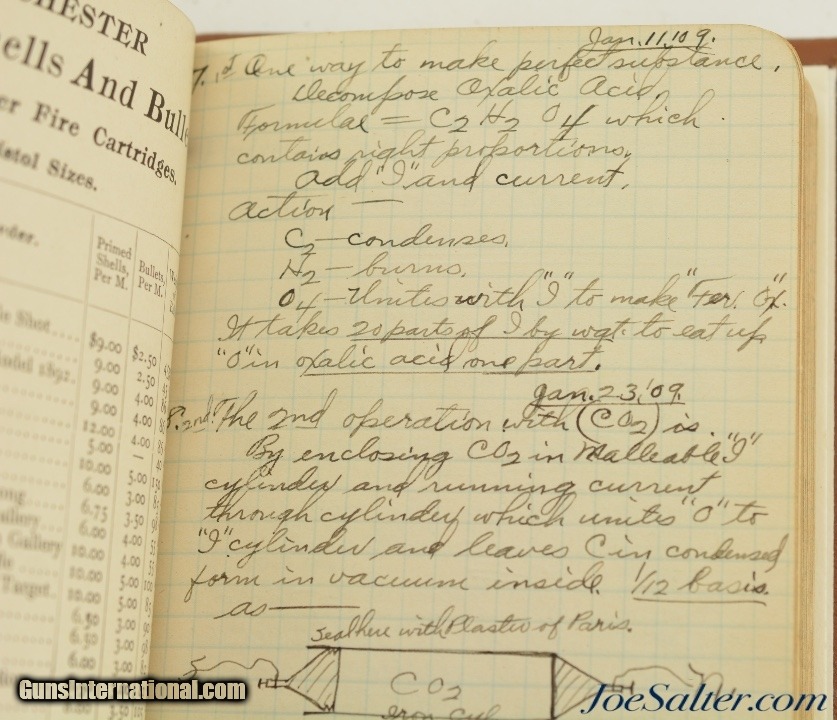 CHESTER
ells And Bull
er Fire Cartridges.
istol Sizes.
Primed
Shells,
Per M.
Bullets,
Per M.
le Shot....
$9.00
$2.50
9.00
2.50
9.00
4.00
9.00
4.00
12.00
4.00
5.00
—
10.00
5.00
6.00
3.00
6.75
3.50
6.00
4.00
10.00
10.00
5.00
Jan. 11, '09.
7. 1st One way to make perfect substance.
Decompose Oxalic Acid,
Formulae = C2 H2 O4 which
contains right proportions,
Add "I" and current,
Action —
C2 — condenses.
H2 — burns.
O4 — Unites with "I" to make "Fer. Ox".
It takes 20 parts of I by wgt. to eat up
"O" in oxalic acid one part.
Jan. 23, '09.
8. 2nd. The 2nd operation with (CO2) is
By enclosing CO2 in Malleable "I"
cylinder and running current
through cylinder which unites "O" to
"I" cylinder and leaves C in condensed
form in vacuum inside. 1/12 basis.
as —
Seal here with Plaster of Paris.
CO2
Iron Cyl
GunsInternational.com
JoeSalter.com